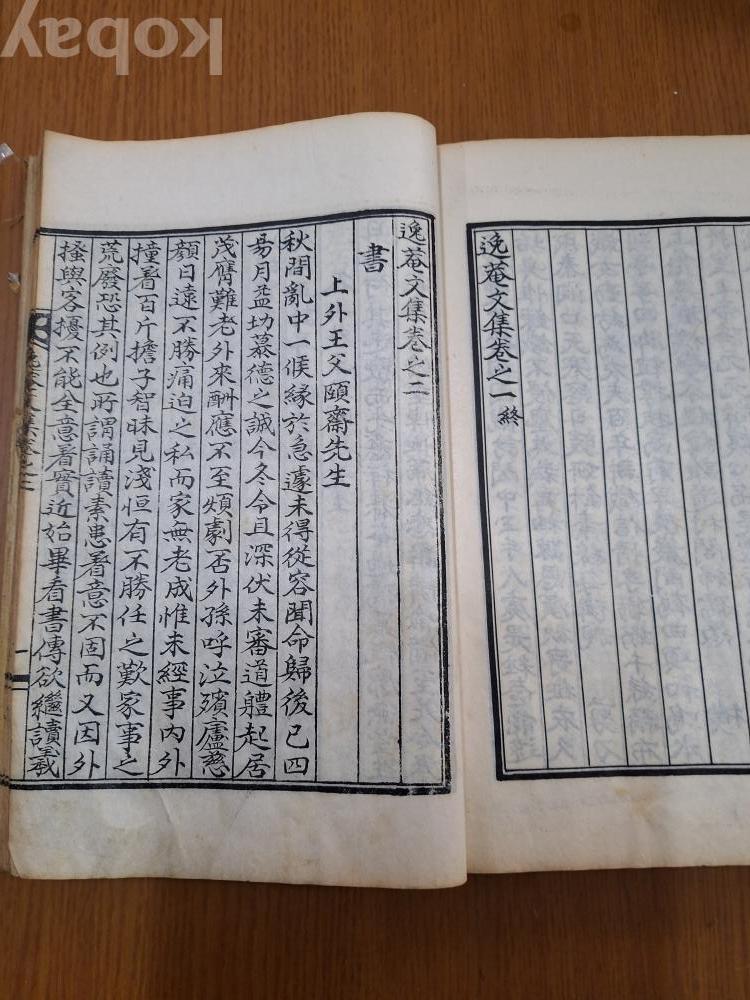 kobay
逸菴文集卷之一 終
逸菴文集卷之二
書
上外王父頤齋先生
秋間亂中一候緣於急遽未得從容聞命歸後已四
昜月孟切慕德之誠今冬令且深伏未審道體起居
茂膺難老外來酬應不至頻劇否外孫呼泣殯廬慈
顏日遠不勝痛迫之私而家無老成惟未經事內外
撞着百斤擔子智昧見淺恒有不勝任之歎家事之
荒廢恐其例也所謂誦讀素患着意不固而又因外
搔與客擾不能全意看實近始畢看書傳欲繼讀
逸菴文集卷之二